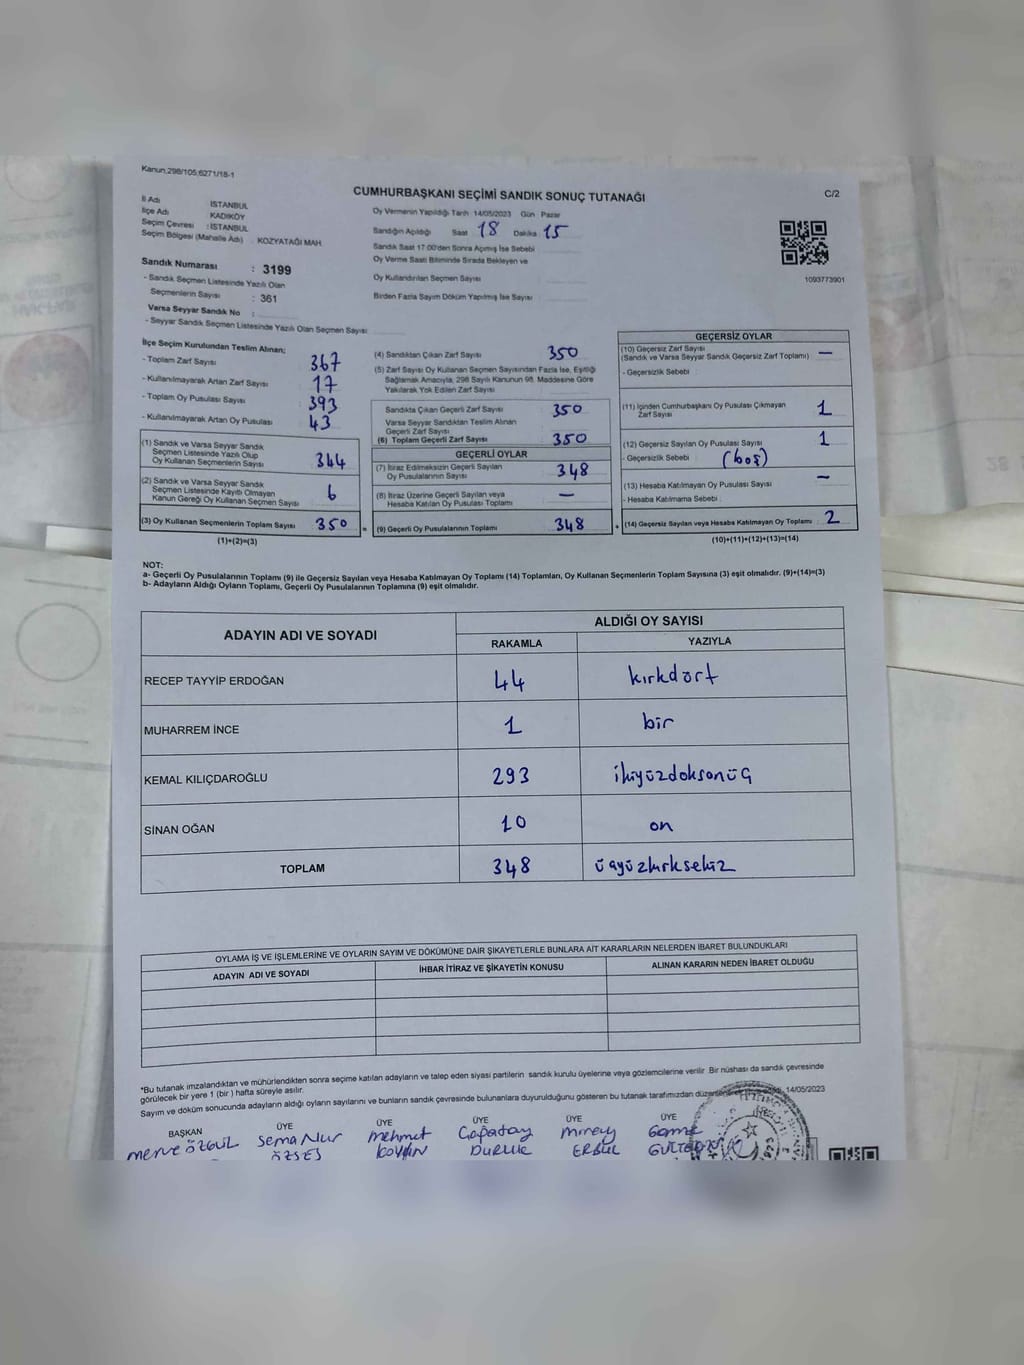 Kanun,298/105;6271/18-1
CUMHURBAŞKANI SEÇİMİ SANDIK SONUÇ TUTANAĞI
C/2
İl Adı İSTANBUL
İlçe Adı KADIKÖY
Seçim Çevresi : İSTANBUL
Seçim Bölgesi (Mahalle Adı) . KOZYATAĞI MAH.
Oy Vermenin Yapıldığı Tarih 14/05/2023 Gün Pazar
Sandığın Açıldığı Saat 18 Dakika 15
Sandık Saat 17.00'den Sonra Açılmış İse Sebebi
Oy Verme Saati Bitiminde Sırada Bekleyen ve
Oy Kullandırılan Seçmen Sayısı
Birden Fazla Sayım Döküm Yapılmış İse Sayısı
1093773901
Sandık Numarası : 3199
- Sandık Seçmen Listesinde Yazılı Olan
Seçmenlerin Sayısı : 361
Varsa Seyyar Sandık No :
- Seyyar Sandık Seçmen Listesinde Yazılı Olan Seçmen Sayısı
İlçe Seçim Kurulundan Teslim Alınan;
- Toplam Zarf Sayısı 367
- Kullanılmayarak Artan Zarf Sayısı 17
- Toplam Oy Pusulası Sayısı 393
- Kullanılmayarak Artan Oy Pusulası 43
(1) Sandık ve Varsa Seyyar Sandık
Seçmen Listesinde Yazılı Olup
Oy Kullanan Seçmenlerin Sayısı 344
(2) Sandık ve Varsa Seyyar Sandık
Seçmen Listesinde Kayıtlı Olmayan
Kanun Gereği Oy Kullanan Seçmen Sayısı 6
(3) Oy Kullanan Seçmenlerin Toplam Sayısı 350 =
(1)+(2)=(3)
(4) Sandıktan Çıkan Zarf Sayısı 350
(5) Zarf Sayısı Oy Kullanan Seçmen Sayısından Fazla İse, Eşitliği
Sağlamak Amacıyla, 298 Sayılı Kanunun 98. Maddesine Göre
Yakılarak Yok Edilen Zarf Sayısı
Sandıkta Çıkan Geçerli Zarf Sayısı 350
Varsa Seyyar Sandıktan Teslim Alınan
Geçerli Zarf Sayısı
(6) Toplam Geçerli Zarf Sayısı 350
GEÇERLİ OYLAR
(7) İtiraz Edilmeksizin Geçerli Sayılan
Oy Pusulalarının Sayısı 348
(8) İtiraz Üzerine Geçerli Sayılan veya
Hesaba Katılan Oy Pusulası Toplamı —
(9) Geçerli Oy Pusulalarının Toplamı 348 +
GEÇERSİZ OYLAR
(10) Geçersiz Zarf Sayısı
(Sandık ve Varsa Seyyar Sandık Geçersiz Zarf Toplamı) —
- Geçersizlik Sebebi
(11) İçinden Cumhurbaşkanı Oy Pusulası Çıkmayan
Zarf Sayısı 1
(12) Geçersiz Sayılan Oy Pusulası Sayısı 1
- Geçersizlik Sebebi (boş)
(13) Hesaba Katılmayan Oy Pusulası Sayısı —
- Hesaba Katılmama Sebebi
(14) Geçersiz Sayılan veya Hesaba Katılmayan Oy Toplamı 2
(10)+(11)+(12)+(13)=(14)
NOT:
a- Geçerli Oy Pusulalarının Toplamı (9) ile Geçersiz Sayılan veya Hesaba Katılmayan Oy Toplamı (14) Toplamları, Oy Kullanan Seçmenlerin Toplam Sayısına (3) eşit olmalıdır. (9)+(14)=(3)
b- Adayların Aldığı Oyların Toplamı, Geçerli Oy Pusulalarının Toplamına (9) eşit olmalıdır.
ADAYIN ADI VE SOYADI
ALDIĞI OY SAYISI
RAKAMLA YAZIYLA
RECEP TAYYİP ERDOĞAN 44 kırkdört
MUHARREM İNCE 1 bir
KEMAL KILIÇDAROĞLU 293 ikiyüzdoksanüç
SİNAN OĞAN 10 on
TOPLAM 348 üçyüzkırksekiz
OYLAMA İŞ VE İŞLEMLERİNE VE OYLARIN SAYIM VE DÖKÜMÜNE DAİR ŞİKAYETLERLE BUNLARA AİT KARARLARIN NELERDEN İBARET BULUNDUKLARI
ADAYIN ADI VE SOYADI İHBAR İTİRAZ VE ŞİKAYETİN KONUSU ALINAN KARARIN NEDEN İBARET OLDUĞU
*Bu tutanak imzalandıktan ve mühürlendikten sonra seçime katılan adayların ve talep eden siyasi partilerin sandık kurulu üyelerine veya gözlemcilerine verilir. Bir nüshası da sandık çevresinde
görülecek bir yere 1 (bir) hafta süreyle asılır.
Sayım ve döküm sonucunda adayların aldığı oyların sayılarını ve bunların sandık çevresinde bulunanlara duyurulduğunu gösteren bu tutanak tarafımızdan 14/05/2023
BAŞKAN ÜYE ÜYE ÜYE ÜYE ÜYE
merve ÖZGÜL Sema Nur Mehmet Çağatay Miray
ÖZSES KOVAN DURUK ERBUL